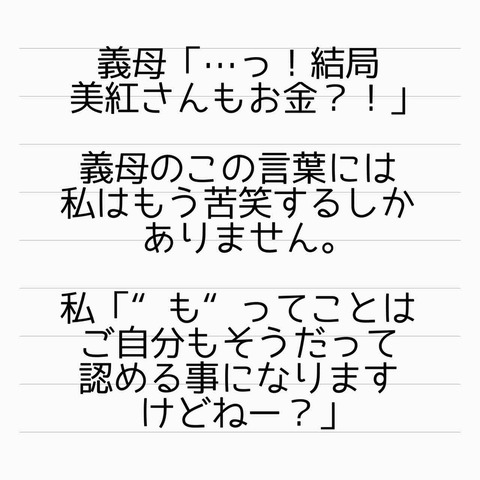 義母「…っ！結局
美紅さんもお金？！」
義母のこの言葉には
私はもう苦笑するしか
ありません。
私「“も“ってことは
ご自分もそうだって
認める事になります
けどねー？」